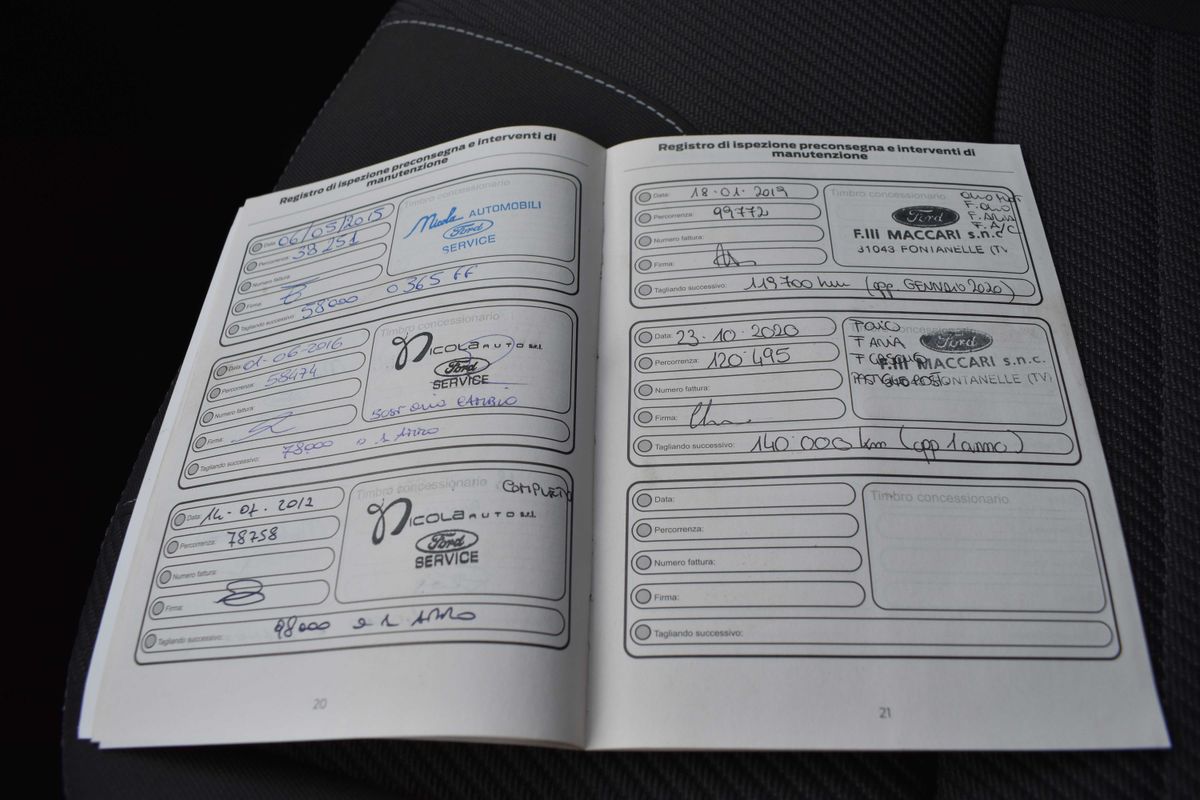 Registro di ispezione preconsegna e interventi di
manutenzione
Data: 06/05/2015
Percorrenza: 38251
Numero fattura:
Firma:
Tagliando successivo: 58000 o 365 FF
Timbro concessionario
Nicola AUTOMOBILI
Ford
SERVICE
Data: 01-06-2016
Percorrenza: 58474
Numero fattura:
Firma:
Tagliando successivo: 78000 o 1 ANNO
Timbro concessionario
Nicola AUTO s.r.l.
Ford
SERVICE
SOST OLIO CAMBIO
Data: 14-07-2017
Percorrenza: 78758
Numero fattura:
Firma:
Tagliando successivo: 98000 o 1 ANNO
Timbro concessionario
COMPLETO
Nicola AUTO s.r.l.
Ford
SERVICE
20
Registro di ispezione preconsegna e interventi di
manutenzione
Data: 18-01-2019
Percorrenza: 99772
Numero fattura:
Firma:
Tagliando successivo: 119700 km (opp GENNAIO 2020)
Timbro concessionario
OLIO
F. OLIO
F. ARIA
F. A/C
Ford
F.lli MACCARI s.n.c
31043 FONTANELLE (TV
Data: 23-10-2020
Percorrenza: 120495
Numero fattura:
Firma:
Tagliando successivo: 140.000 km (opp 1 anno)
Timbro concessionario
F OLIO
F ARIA
Ford
F.lli MACCARI s.n.c.
FONTANELLE (TV)
Data:
Percorrenza:
Numero fattura:
Firma:
Tagliando successivo:
Timbro concessionario
21